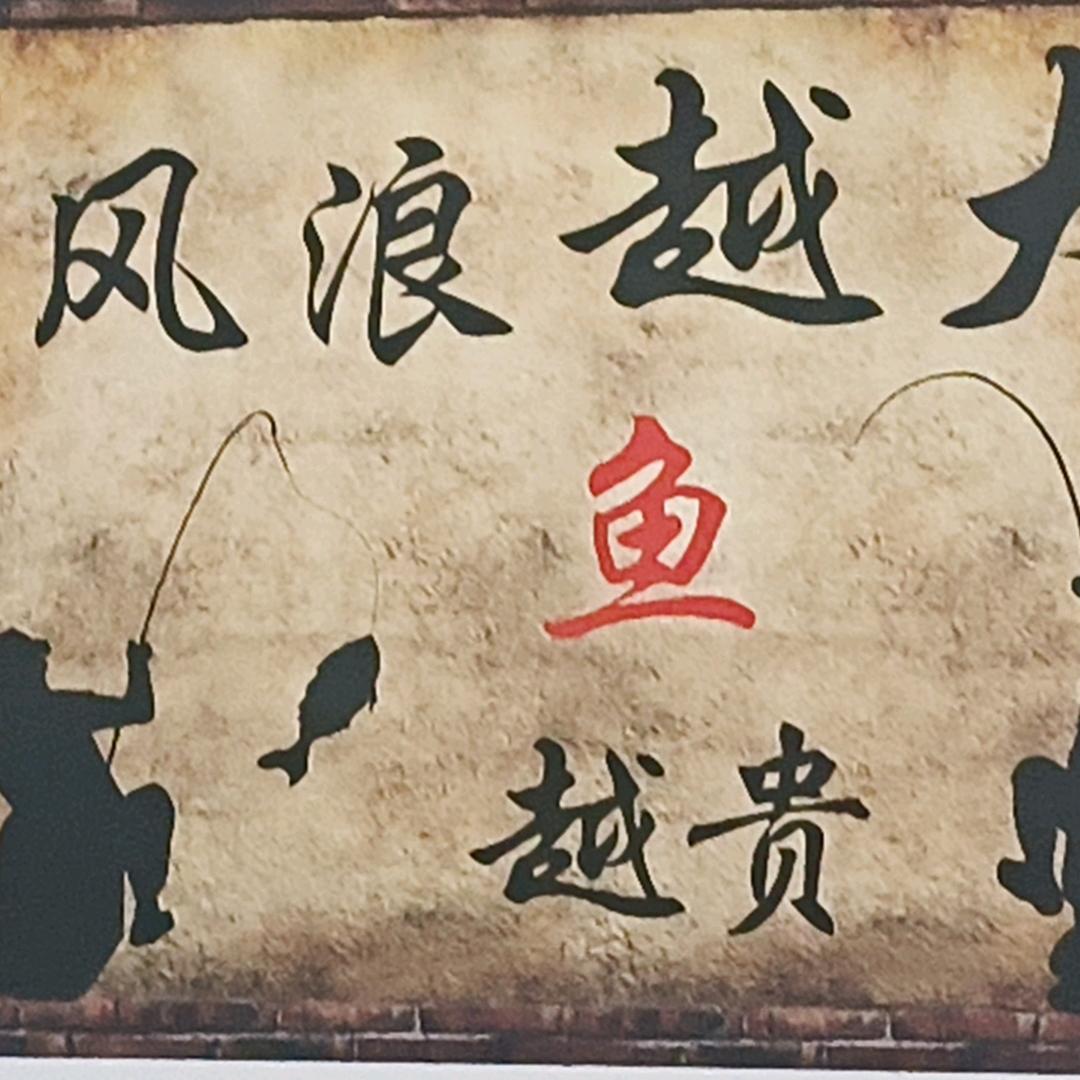 风浪越大
鱼
越贵